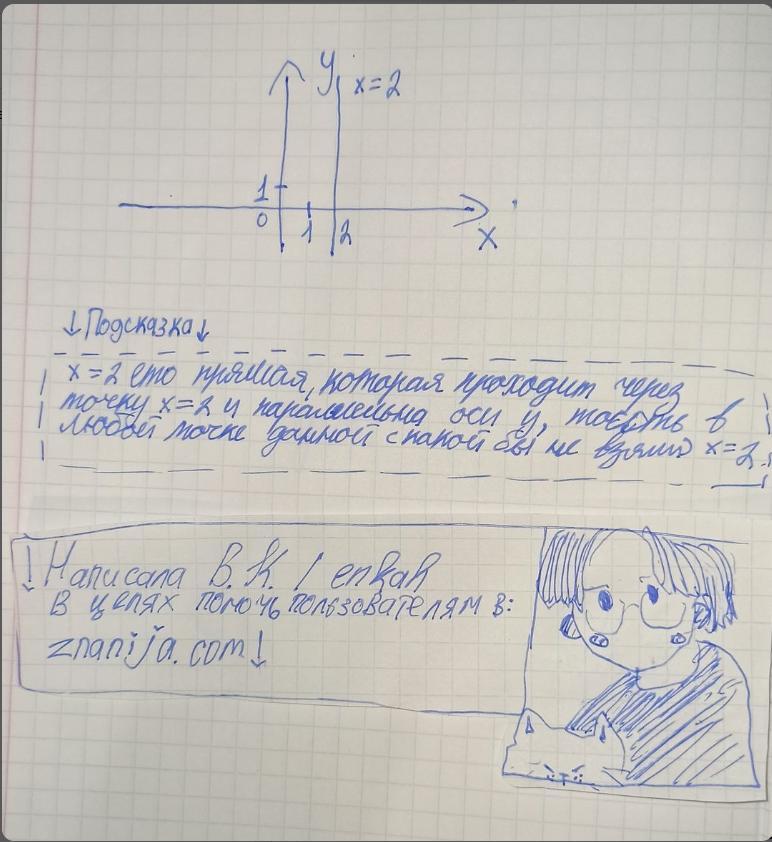 y
x=2
1
0
1
2
x
↓Подсказка↓
x=2 ето прямая, которая проходит через
точку x=2 и параллельна оси y, тоесть в
любой точке данной с какой бы не взяли x=2
!Написала В.К. / enkak
в целях помочь пользователям в:
znanija.com!